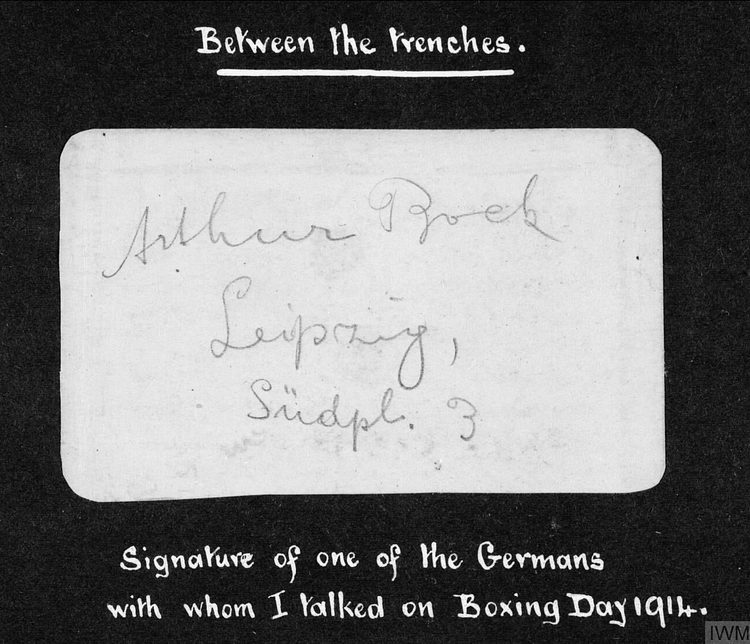 Between the trenches.
Arthur Bock
Leipzig,
Südpl. 3
Signature of one of the Germans
with whom I talked on Boxing Day 1914.
IWM